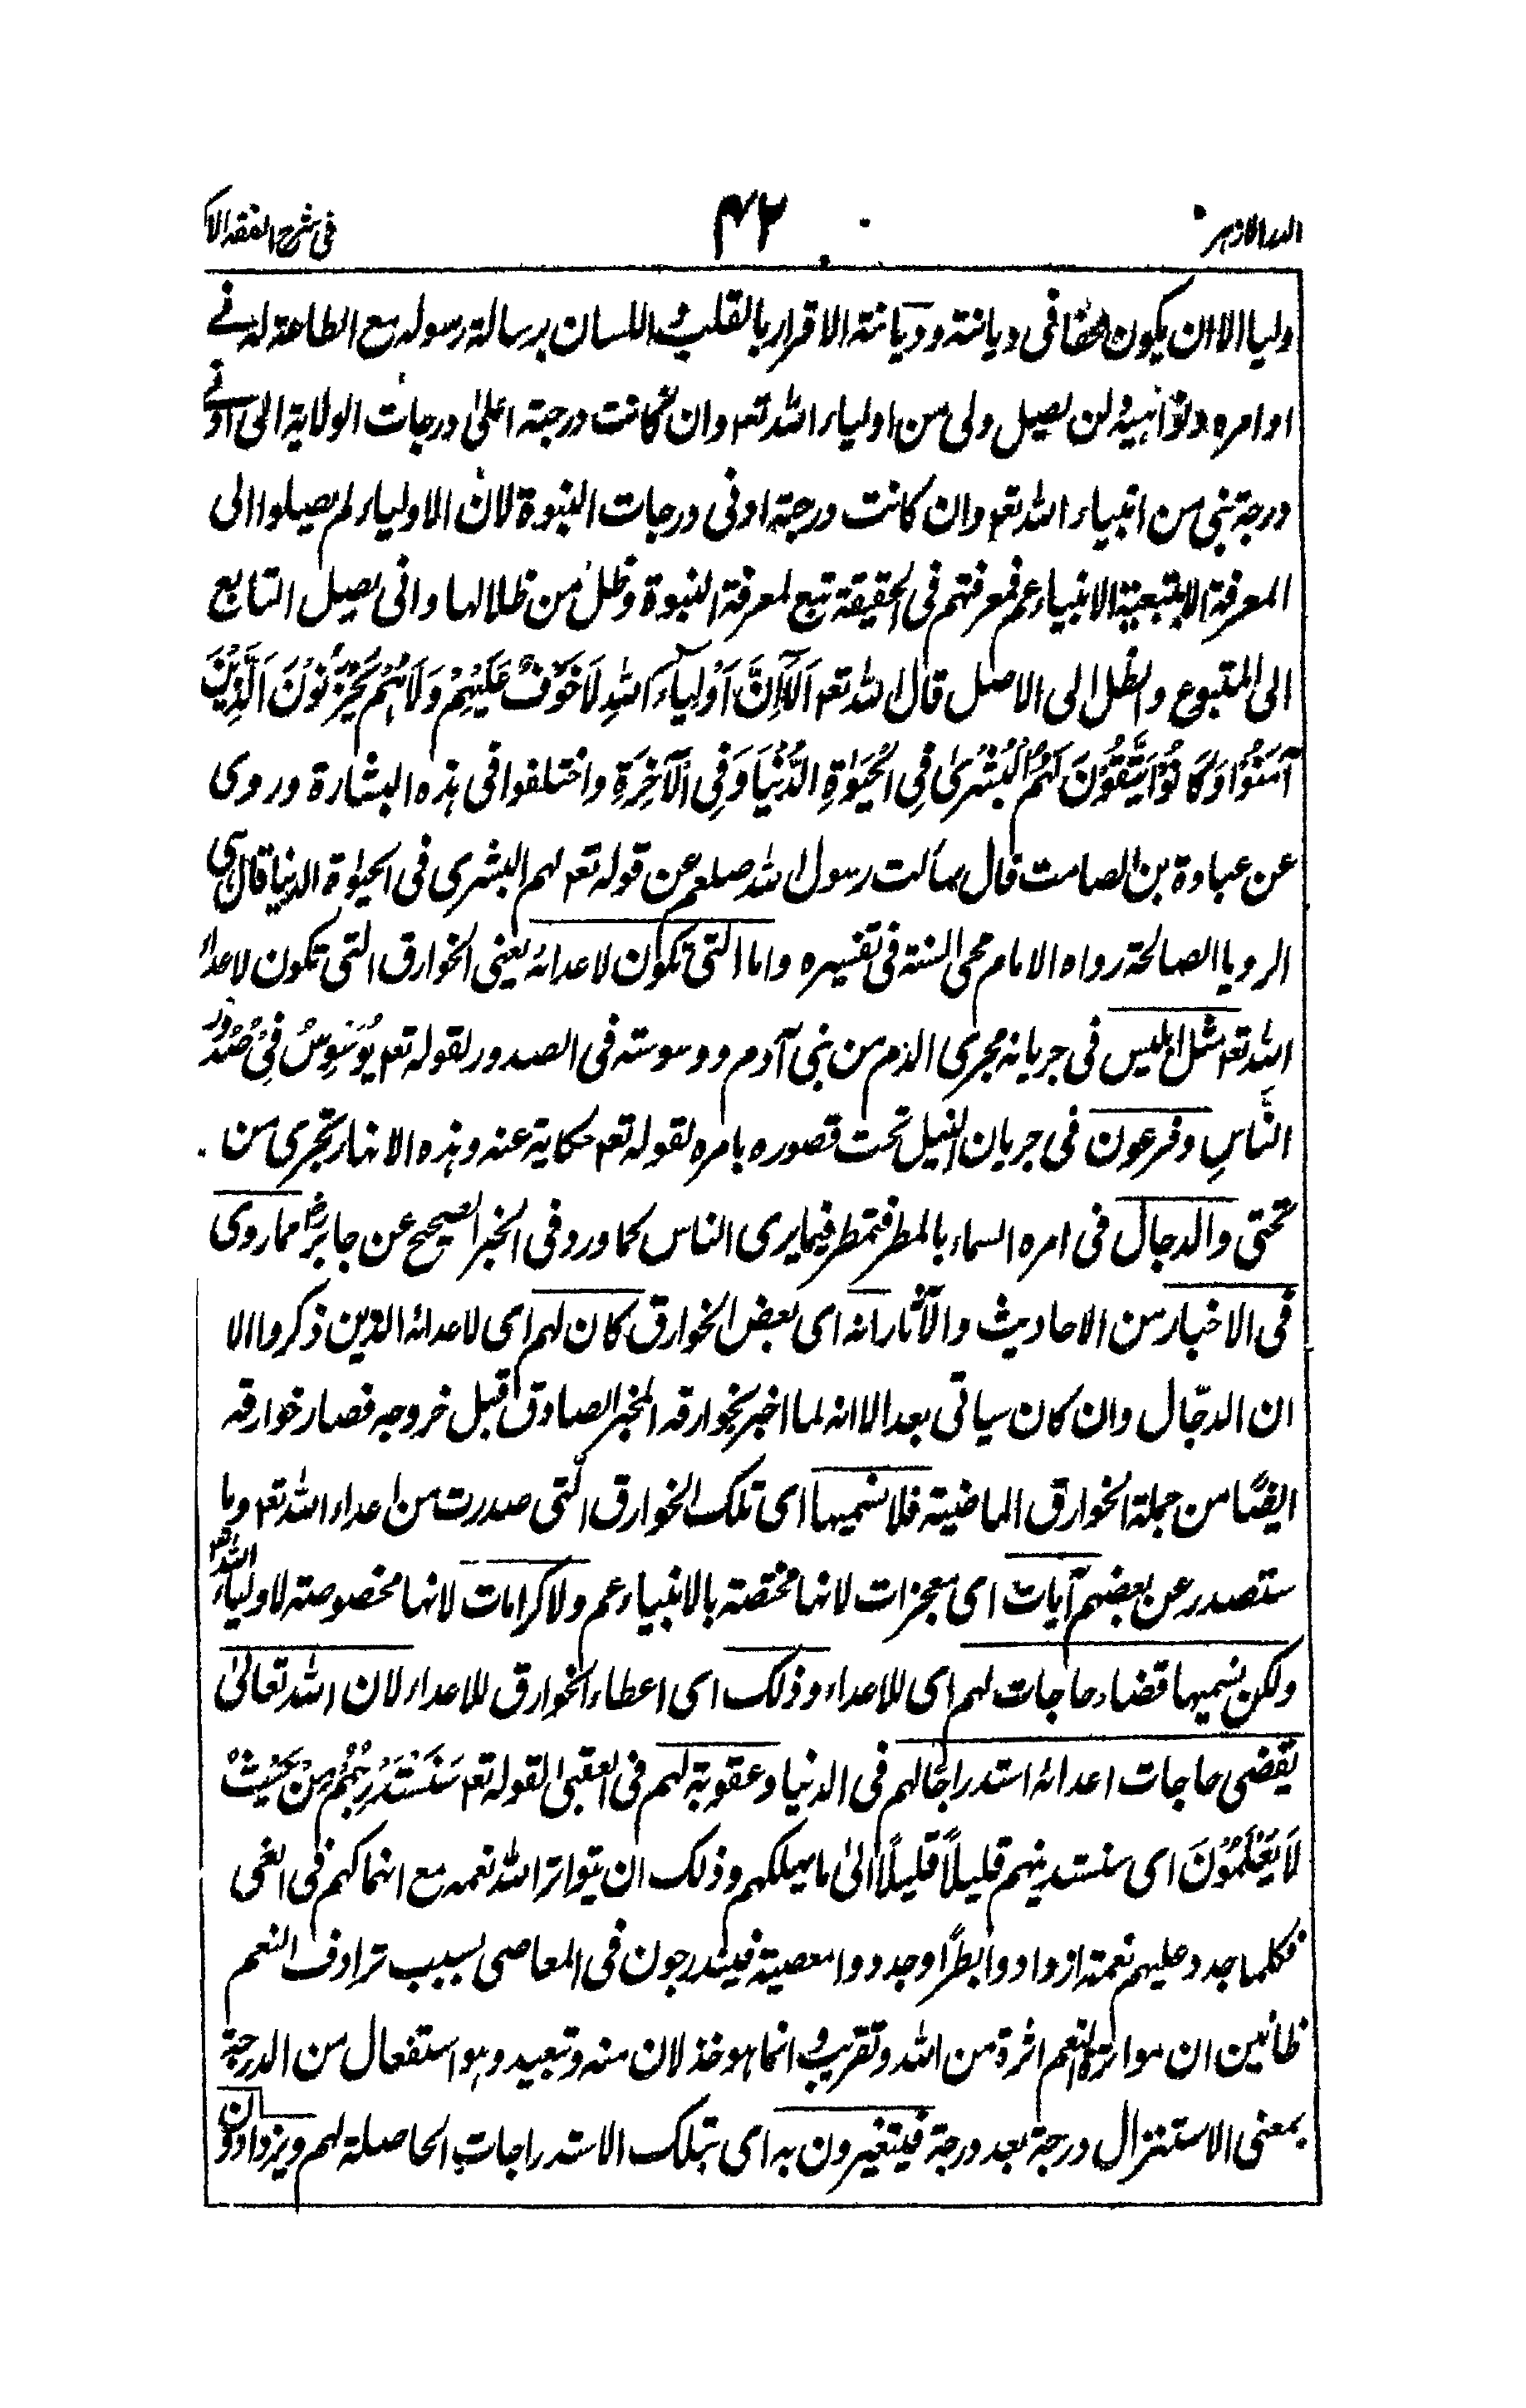 الدر الازهر ۴۲ فی شرح الفقه الاکبر
ولیا الا ان یکون محقا فی دیانته ودیانته الاقرار بالقلب واللسان برسالة رسوله مع الطاعة له فے
اوامره ونواهیه ولن یصیل ولی من اولیاء الله تعم وان کانت درجته اعلیٰ درجات الولایة الی ادنے
درجة نبی من انبیاء الله تعم وان کانت درجته ادنی درجات النبوة لان الاولیاء لم یصیلوا الی
المعرفة الا بتبعیة الانبیاء عم فمعرفتهم فی الحقیقة تبع لمعرفة النبوة وظل من ظلالها وانی یصیل التابع
الی المتبوع والظل الی الاصل قال الله تعم اَلَآ اِنَّ اَوْلِیَآءَ اللهِ لَا خَوْفٌ عَلَیْهِمْ وَلَا هُمْ یَحْزَنُوْنَ اَلَّذِیْنَ
آمَنُوْا وَکَانُوْا یَتَّقُوْنَ لَهُمُ الْبُشْرٰی فِی الْحَیٰوةِ الدُّنْیَا وَفِی الْآخِرَةِ واختلفوا فی هذه البشارة وروی
عن عبادة بن الصامت قال سألت رسول الله صلعم عن قوله تعم لهم البشری فی الحیٰوة الدنیا قال هی
الرویا الصالحة رواه الامام محی السنة فی تفسیره واما التی تکون لاعدائه یعنی الخوارق التی تکون لاعداء
الله تعم مثل ابلیس فی جریانه مجری الدم من بنی آدم ووسوسته فی الصدور لقوله تعم یُوَسْوِسُ فِیْ صُدُوْرِ
النَّاسِ وفرعون فی جریان النیل تحت قصوره بامره لقوله تعم حکایة عنه وهذه الانهار تجری من
تحتی والدجال فی امره السماء بالمطر فتمطر فیما یری الناس کما ورد فی الخبر الصحیح عن جابرؓ مما روی
فی الاخبار من الاحادیث والآثار انه ای بعض الخوارق کان لهم ای لاعدائه الذین ذکروا الا
ان الدجّال وان کان سیاتی بعد الا انه لما اخبر بخوارقه المخبر الصادق قبل خروجه فصار خوارقه
ایضًا من جملة الخوارق الماضیة فلا نسمیها ای تلک الخوارق التی صدرت من اعداء الله تعم وما
ستصدر عن بعضهم آیات ای معجزات لانها مختصة بالانبیاء عم ولا کرامات لانها مخصوصة لاولیاء الله تعم
ولکن نسمیها قضاء حاجات لهم ای للاعداء وذلک ای اعطاء الخوارق للاعداء لان الله تعالیٰ
یقضی حاجات اعدائه استدراجًا لهم فی الدنیا وعقوبة لهم فی العقبیٰ لقوله تعم سَنَسْتَدْرِجُهُمْ مِنْ حَیْثُ
لَا یَعْلَمُوْنَ ای سنستدینهم قلیلاً قلیلاً الیٰ ما یهلکهم وذلک ان یتواتر الله نعمه مع انهماکهم فی الغی
فکلما جدد علیهم نعمة ازدادوا بطرًا وجددوا معصیة فیتدرجون فی المعاصی بسبب ترادف النعم
ظانین ان مواترة النعم اثرة من الله وتقریب وانما هو خذلان منه وتبعید وهو استفعال من الدرجة
بمعنی الاستنزال درجة بعد درجة فیتغیرون به ای بتلک الاستدراجات الحاصلة لهم ویزدادون